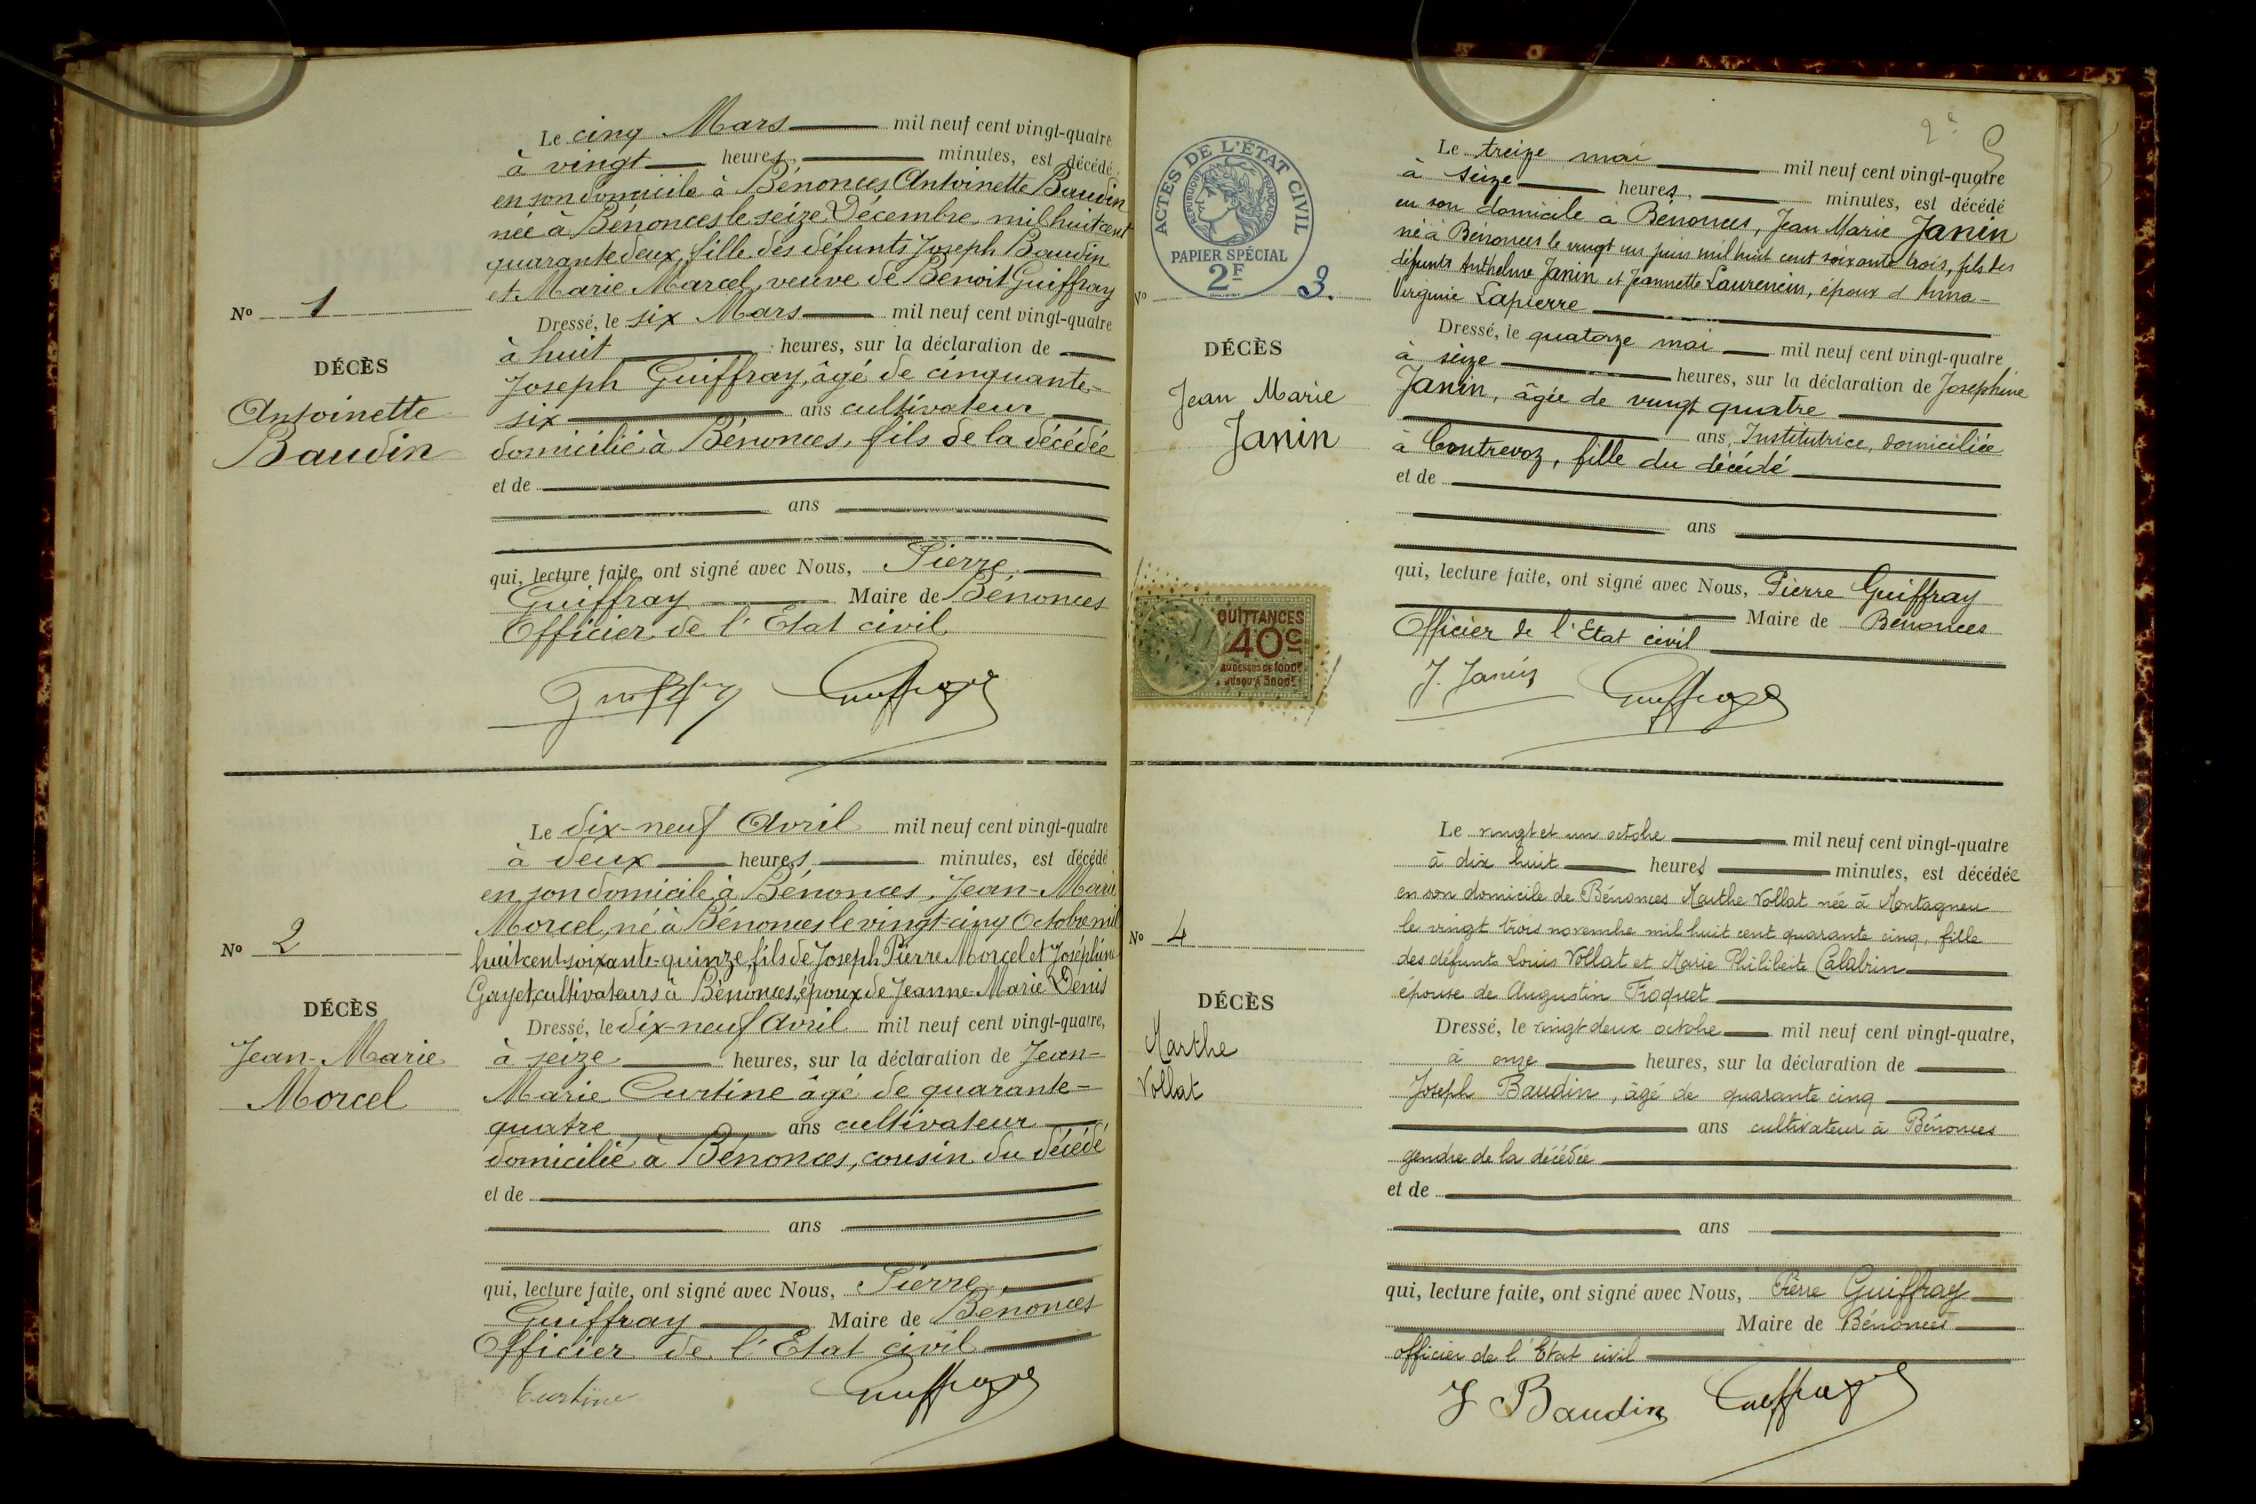 Le cinq Mars mil neuf cent vingt-quatre
à vingt heures, minutes, est décédé
en son domicile à Bénonces Antoinette Baudin
née à Bénonces le seize Décembre mil huit cent
quarante deux, fille des défunts Joseph Baudin
et Marie Marcel, veuve de Benoit Guiffray
No 1
DÉCÈS
Antoinette
Baudin
Dressé, le six Mars mil neuf cent vingt-quatre
à huit heures, sur la déclaration de
Joseph Guiffray, âgé de cinquante-
six ans cultivateur
domicilié à Bénonces, fils de la décédée
et de
ans
qui, lecture faite, ont signé avec Nous, Pierre
Guiffray Maire de Bénonces
Officier de l'Etat civil
Le dix-neuf Avril mil neuf cent vingt-quatre
à deux heures minutes, est décédé
en son domicile à Bénonces, Jean-Marie
Morcel, né à Bénonces le vingt-cinq Octobre mil
huit cent soixante-quinze, fils de Joseph Pierre Morcel et Joséphine
Gayet, cultivateurs à Bénonces, époux de Jeanne-Marie Denis
No 2
DÉCÈS
Jean-Marie
Morcel
Dressé, le dix-neuf Avril mil neuf cent vingt-quatre,
à seize heures, sur la déclaration de Jean-
Marie Curtine âgé de quarante-
quatre ans cultivateur
domicilié à Bénonces, cousin du décédé
et de
ans
qui, lecture faite, ont signé avec Nous, Pierre
Guiffray Maire de Bénonces
Officier de l'Etat civil
Curtine
2e
ACTES DE L'ÉTAT CIVIL
RÉPUBLIQUE FRANÇAISE
PAPIER SPÉCIAL
2F
Le treize mai mil neuf cent vingt-quatre
à seize heures, minutes, est décédé
en son domicile à Bénonces, Jean Marie Janin
né à Bénonces le vingt un juin mil huit cent soixante trois, fils des
défunts Anthelme Janin et Jeannette Laurencin, époux d'Anna-
Virginie Lapierre
No 3.
DÉCÈS
Jean Marie
Janin
Dressé, le quatorze mai mil neuf cent vingt-quatre
à seize heures, sur la déclaration de Josephine
Janin, âgée de vingt quatre
ans, Institutrice, domiciliée
à Contrevoz, fille du décédé
et de
ans
qui, lecture faite, ont signé avec Nous, Pierre Guiffray
Maire de Bénonces
Officier de l'Etat civil
J. Janin
QUITTANCES
40c
AU DESSUS DE 1000F
JUSQU'A 3000F
Le vingt et un octobre mil neuf cent vingt-quatre
à dix huit heures minutes, est décédée
en son domicile de Bénonces Marthe Vollat née à Montagneu
le vingt trois novembre mil huit cent quarante cinq, fille
des défunts Louis Vollat et Marie Philiberte Calabrin
épouse de Augustin Froquet
No 4
DÉCÈS
Marthe
Vollat
Dressé, le vingt deux octobre mil neuf cent vingt-quatre,
à onze heures, sur la déclaration de
Joseph Baudin, âgé de quarante cinq
ans cultivateur à Bénonces
gendre de la décédée
et de
ans
qui, lecture faite, ont signé avec Nous, Pierre Guiffray
Maire de Bénonces
officier de l'Etat civil
J Baudin